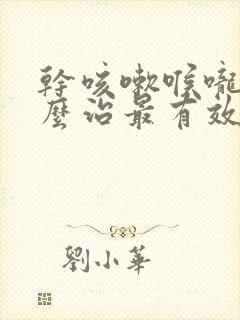 幹咳嗽喉嚨
麼治最有效
劉小華